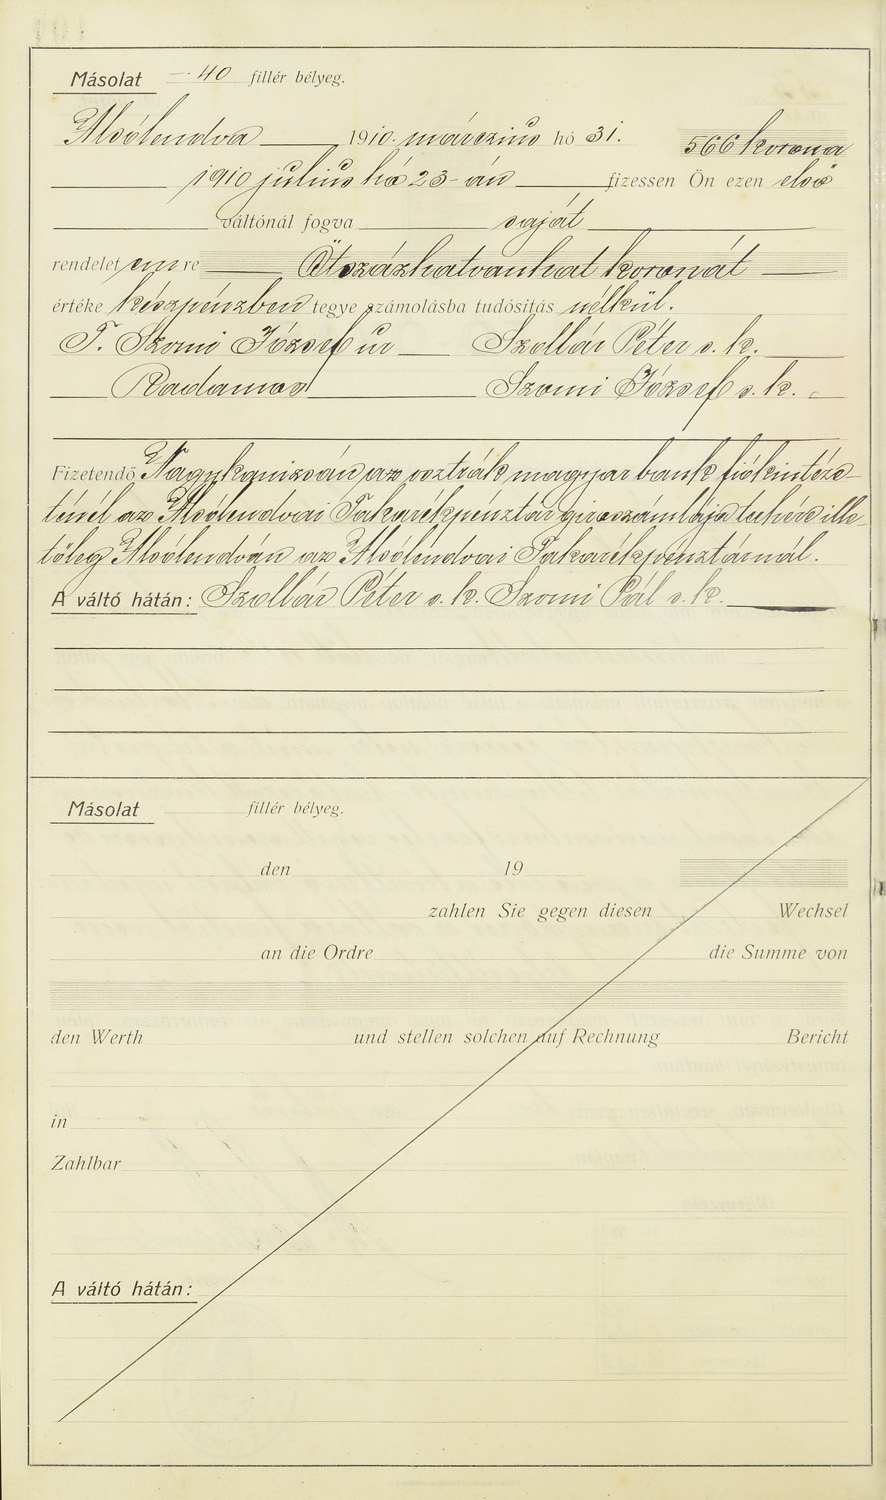 Másolat —·40 fillér bélyeg.
Alsólendva 1910. márczius hó 31. 566 korona
1910 julius hó 23-án fizessen Ön ezen első
váltónál fogva saját
rendelet em re Ötszázhatvanhat koronát
értéke készpénzben tegye számolásba tudósítás nélkül.
T. Szomi József úr Szollár Péter s. k.
Radamos Szomi József s. k.
Fizetendő Nagykanizsán az osztrák magyar bank fiókintéze-
ténél az Alsólendvai Takarékpénztár giroszámlája terhére ille-
tőleg Alsólendván az Alsólendvai Takarékpénztárnál.
A váltó hátán: Szollár Péter s. k. Szomi Pál s. k.
Másolat fillér bélyeg.
den 19
zahlen Sie gegen diesen Wechsel
an die Ordre die Summe von
den Werth und stellen solchen auf Rechnung Bericht
in
Zahlbar
A váltó hátán: